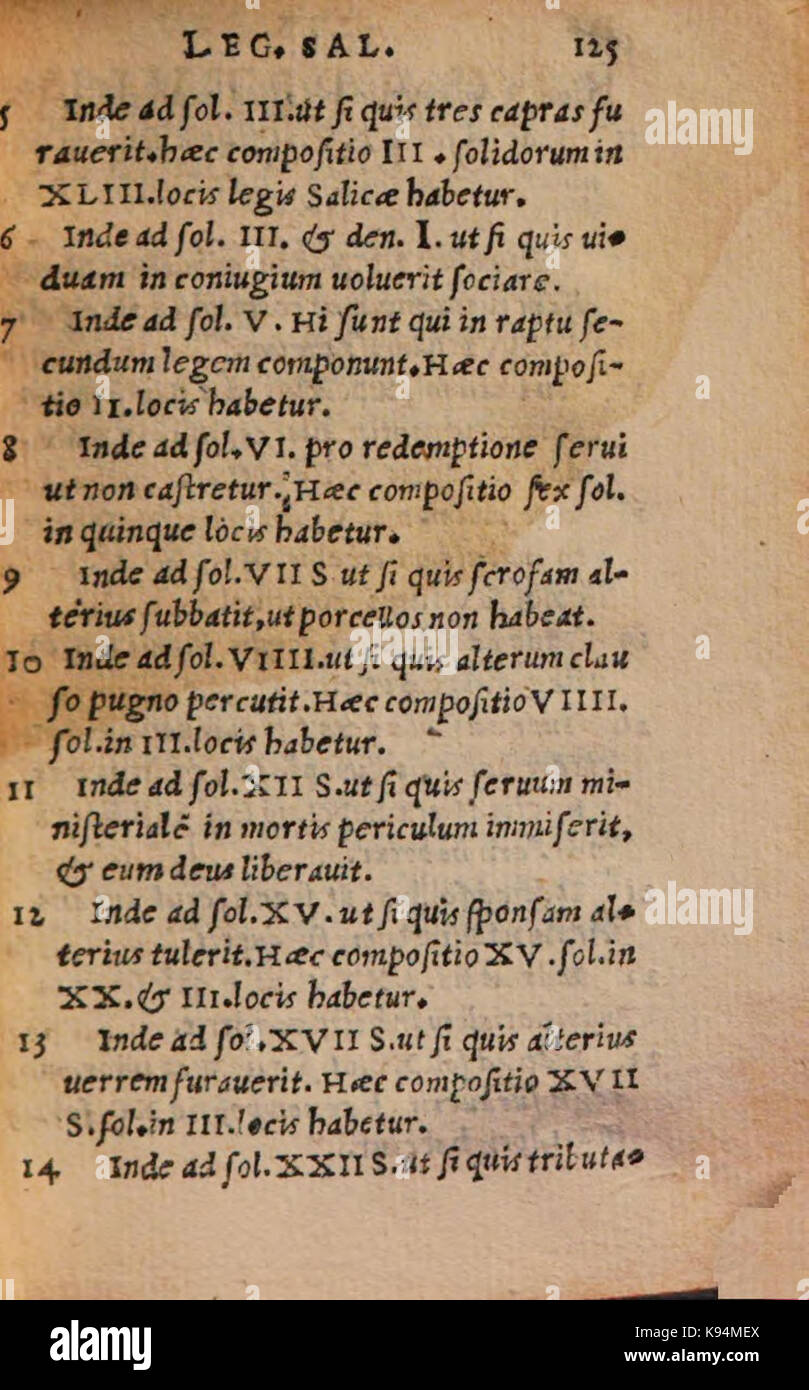 LEG. SAL. 125
5 Inde ad sol. III. ut si quis tres capras fu
rauerit. hæc compositio III. solidorum in
XLIII. locis legis Salicæ habetur.
6 Inde ad sol. III. & den. I. ut si quis ui-
duam in coniugium uoluerit sociare.
7 Inde ad sol. V. Hi sunt qui in raptu se-
cundum legem componunt. Hæc composi-
tio II. locis habetur.
8 Inde ad sol. VI. pro redemptione serui
ut non castretur. Hæc compositio sex sol.
in quinque locis habetur.
9 Inde ad sol. VII S ut si quis scrofam al-
terius subbatit, ut porcellos non habeat.
10 Inde ad sol. VIIII. ut si quis alterum clau
so pugno percutit. Hæc compositio VIIII.
sol. in III. locis habetur.
11 Inde ad sol. XII S. ut si quis seruum mi-
nisterialé in mortis periculum immiserit,
& eum deus liberauit.
12 Inde ad sol. XV. ut si quis sponsam al-
terius tulerit. Hæc compositio XV. sol. in
XX. & III. locis habetur.
13 Inde ad sol. XVII S. ut si quis alterius
uerrem furauerit. Hæc compositio XVII
S. sol. in III. locis habetur.
14 Inde ad sol. XXII S. ut si quis tributa-
alamy
alamy
alamy
alamy
Image ID: K94MEX
www.alamy.com